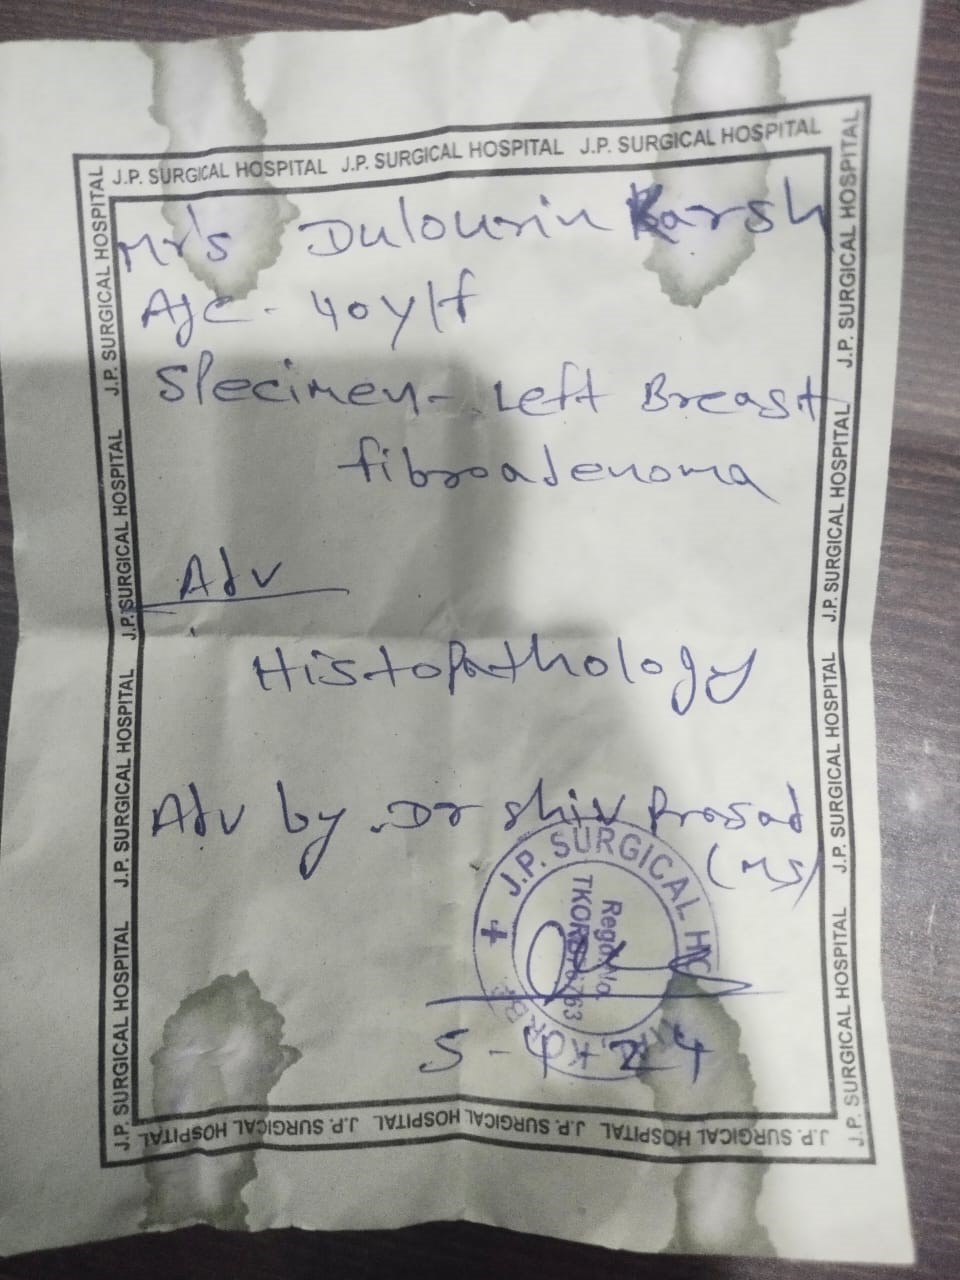 J.P. SURGICAL HOSPITAL J.P. SURGICAL HOSPITAL J.P. SURGICAL HOSPITAL
Mr's Dulourin Karsh
Age - 40y/f
Specimen - Left Breast
fibroadenoma
Adv
Histopathology
Adv by Dr Shiv Prasad
(MS)
J.P. SURGICAL
Regd. No.
5-4-24
J.P. SURGICAL HOSPITAL J.P. SURGICAL HOSPITAL J.P. SURGICAL HOSPITAL
J.P. SURGICAL HOSPITAL J.P. SURGICAL HOSPITAL J.P. SURGICAL HOSPITAL J.P. SURGICAL HOSPITAL
J.P. SURGICAL HOSPITAL J.P. SURGICAL HOSPITAL J.P. SURGICAL HOSPITAL J.P. SURGICAL HOSPITAL